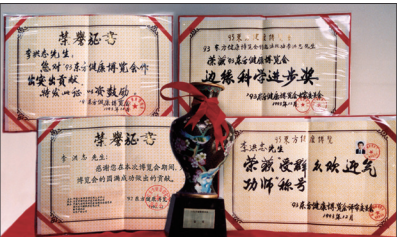 荣誉证书
李洪志先生：
您对'93东方健康博览会作
出突出贡献，
特发此证以资鼓励。
'93东方健康博览会
荣获'93东方健康博览会
边缘科学进步奖
'93东方健康博览会
1993年12月
荣誉证书
李洪志先生：
感谢您在本次博览会期间，为
博览会的圆满成功做出的贡献。
93东方健康博览
李洪志先生
荣获受群众欢迎气
功师称号
'93东方健康博览会评审委员会
1993年12月